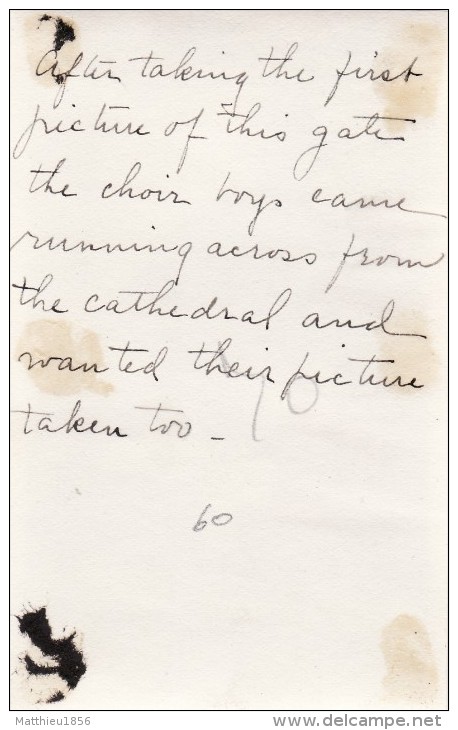 After taking the first
picture of this gate
the choir boys came
running across from
the cathedral and
wanted their picture
taken too –
60
Matthieu1856
www.delcampe.net